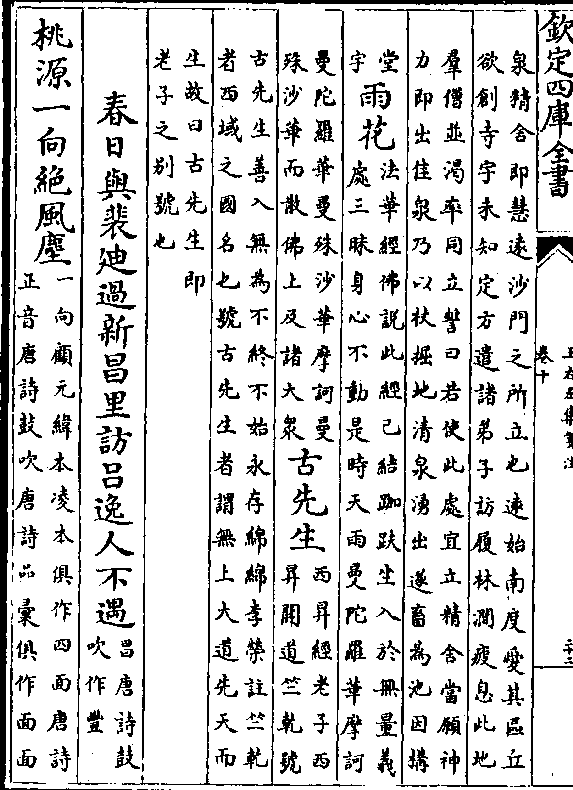 欽定四庫全書
卷十
泉精舍即慧遠沙門之所立也遠始南度愛其區丘
欲創寺宇未知定方遣諸弟子訪履林澗疲息此地
羣僧並渴率同立誓曰若使此處宜立精舍當願神
力即出佳泉乃以杖掘地清泉湧出遂畜為池因搆
堂
宇
雨花
法華經佛説此經已結跏趺坐入於無量義
處三昧身心不動是時天雨曼陀羅華摩訶
曼陀羅華曼殊沙華摩訶曼
殊沙華而散佛上及諸大衆
古先生
西昇經老子西
昇開道竺乾號
古先生善入無為不終不始永存綿綿李榮註竺乾
者西域之國名也號古先生者謂無上大道先天而
生故曰古先生即
老子之别號也
春日與裴迪過新昌里訪吕逸人不遇
昌唐詩鼓
吹作豐
桃源一向絶風塵
一向顧元緯本凌本俱作四面唐詩
正音唐詩鼓吹唐詩品彚俱作面面